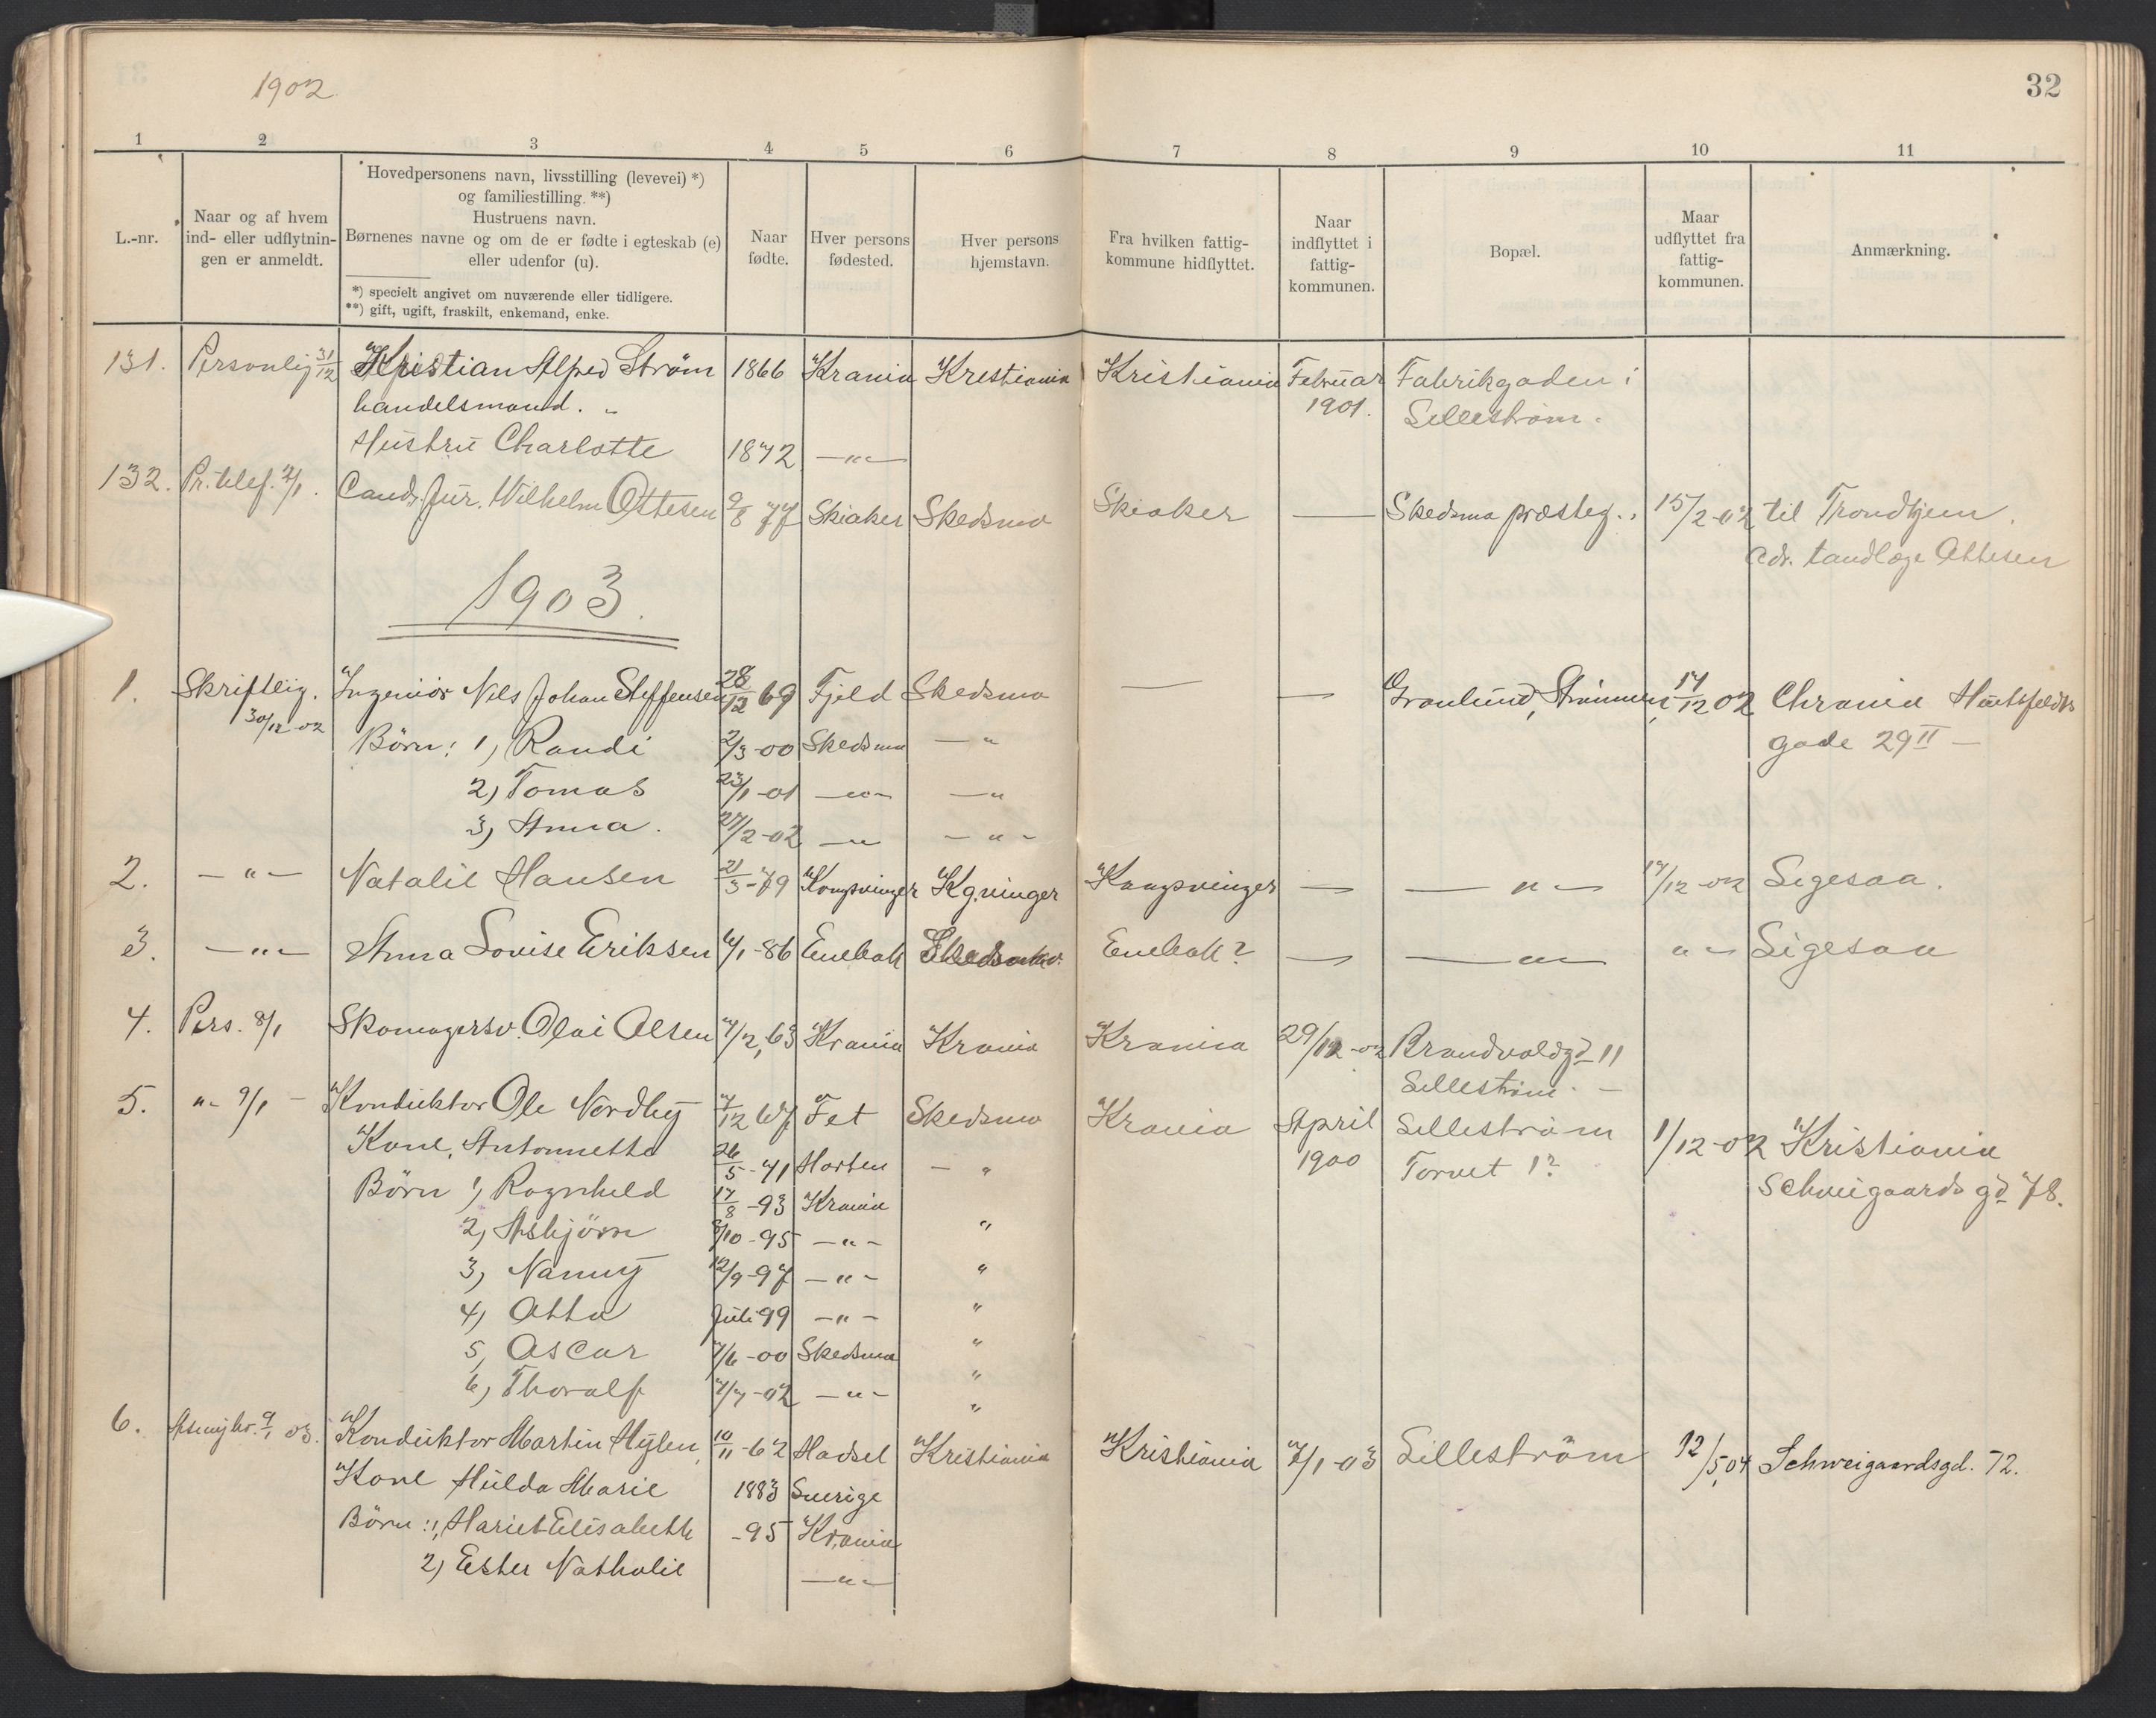 1902
32
1 2 3 4 5 6 7 8 9 10 11
L.-nr.
Naar og af hvem
ind- eller udflytnin-
gen er anmeldt.
Hovedpersonens navn, livsstilling (levevei) *)
og familiestilling. **)
Hustruens navn.
Børnenes navne og om de er fødte i egteskab (e)
eller udenfor (u).
*) specielt angivet om nuværende eller tidligere.
**) gift, ugift, fraskilt, enkemand, enke.
Naar
fødte.
Hver persons
fødested.
Hver persons
hjemstavn.
Fra hvilken fattig-
kommune hidflyttet.
Naar
indflyttet i
fattig-
kommunen.
Bopæl.
Maar
udflyttet fra
fattig-
kommunen.
Anmærkning.
131. Personlig 31/12 Kristian Alfred Strøm 1866 Krania Kristiania Kristiania Februar Fabrikgaden i
handelsmand. 1901. Lilleström.
Hustru Charlotte 1872 —"—
132. Pr. telef. 2/1. Cand. Jur. Wilhelm Ottesen 9/8 77 Skiaker Skedsmo Skiaker — Skedsmo præsteg. 15/2-02 til Trondhjem.
Adr. tandlæge Ottesen
1903.
1. Skriftlig. Ingeniör Nils Johan Steffensen 28/12 69 Fjeld Skedsmo — — Grønlund, Strömmen, 17/12 02 Chrania Huitfeldts
30/12-02 Börn: 1) Randi 2/3-00 Skedsmo —" gade 29 II —
2) Tomas 23/1-01 —"— —"
3) Anna. 27/2-02 —"— —"—
2. —"— Natalie Hansen 21/3-79 Kongsvinger Kgvinger Kongsvinger — —"— 17/12-02 Ligesaa.
3. —"— Anna Lovise Eriksen 6/1-86 Enebak Skedsmo. Enebak? — —"— "— Ligesaa
4. Pers. 8/1 Skomagersv. Olai Olsen 7/2, 63 Krania Krania Krania 29/12-02 Brandvoldgd 11
Lilleström. —
5. "— 9/1 — Konduktor Ole Nordby 7/12 67 Fet Skedsmo Krania April Lilleström 1/12-02 Kristiania
Kone, Antonnette 26/5-71 Horten —" 1900 Torvet 1? Schweigaards gd 78.
Börn 1) Ragnhild 17/8-93 Krania
2) Asbjörn 8/10-95 —"— "
3) Nanny 12/9-97 —"— "
4) Otto Juli 99 —"— "
5) Oscar 7/6-00 Skedsmo "
6) Thoralf 7/7-02 —"— "
"
6. 9/1 03. Konduktor Martin Hylen, 10/11-62 Hadsel Kristiania Kristiania 7/1-03 Lilleström 12/5,04 Schweigaardsgd. 72.
Kone Hulda Marie 1883 Sverige
Börn: 1, Hariet Elisabeth -95 Krania
2) Ester Nathalie —"—